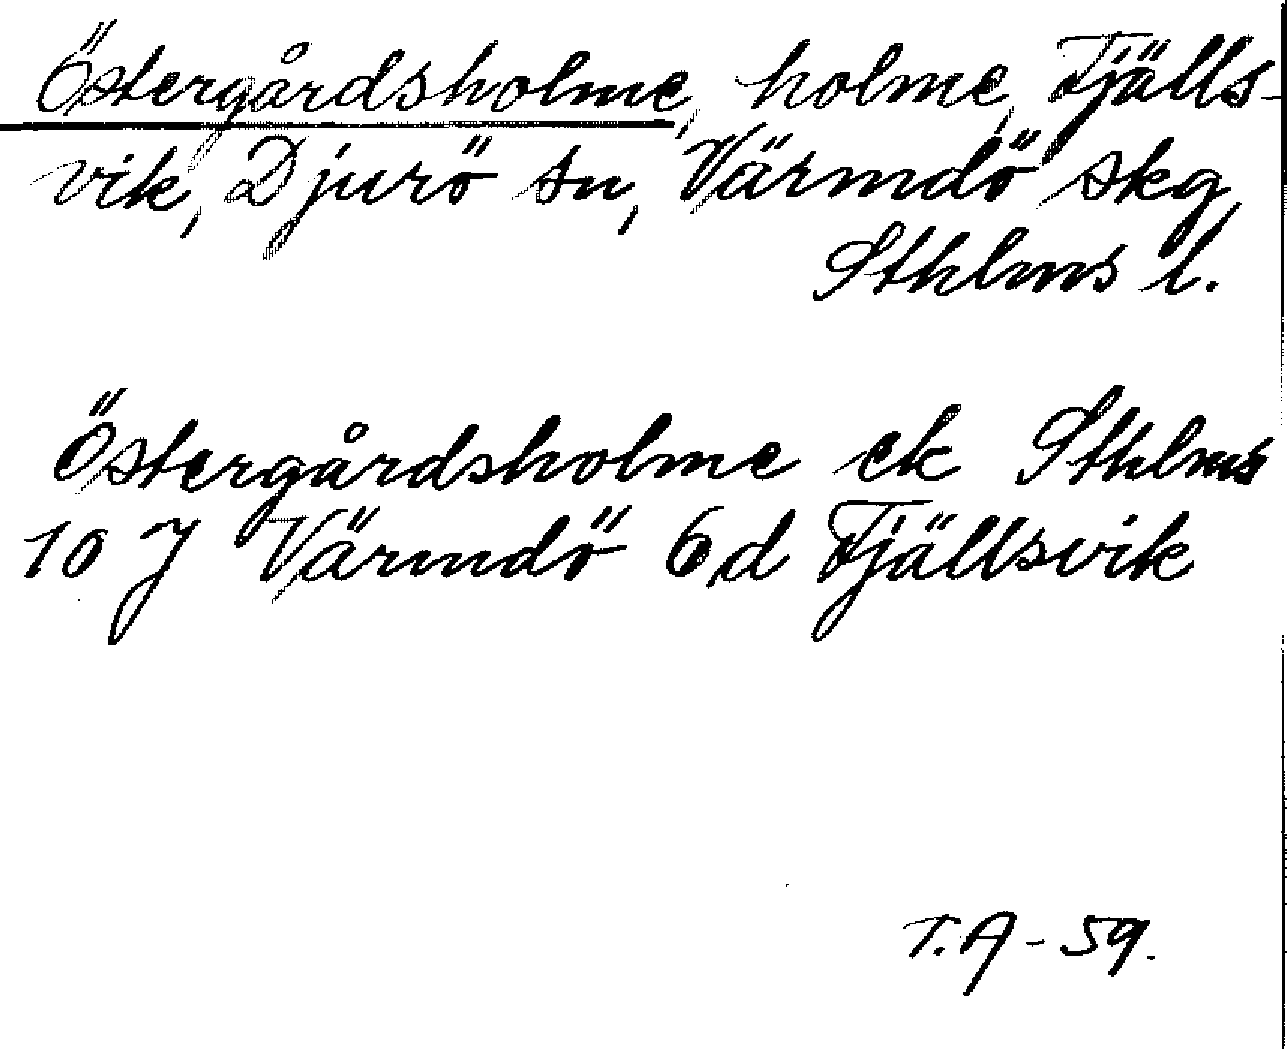 Östergårdsholme, holme, Fjälls-
vik, Djurö sn, Värmdö skg,
Sthlms l.
Östergårdsholme ek Sthlms
10 J Värmdö 6d Fjällsvik
T.A-59.